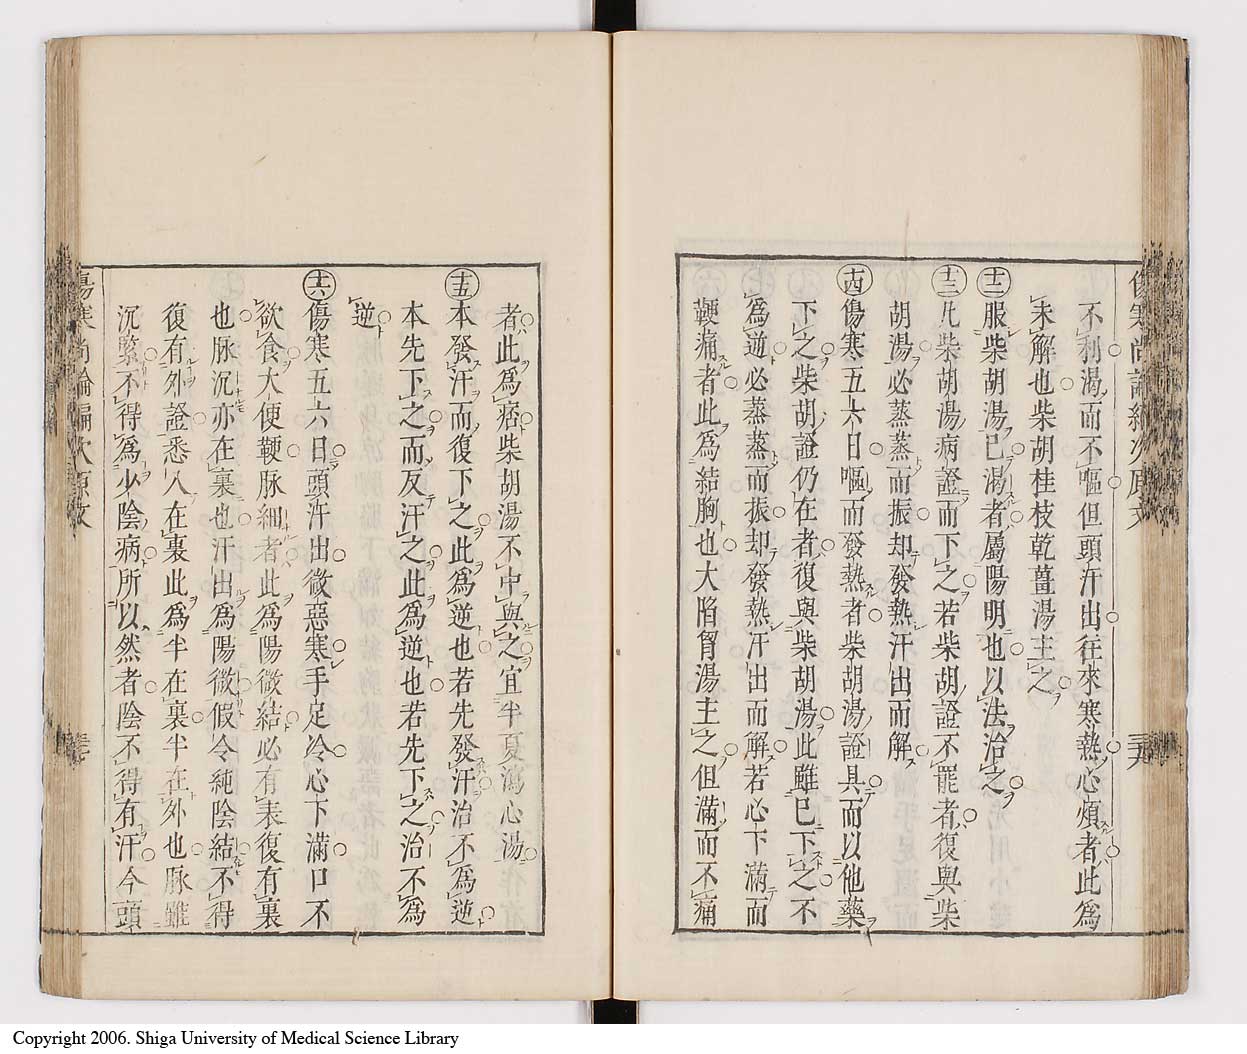 不利渴而不嘔但頭汗出往來寒熱心煩者此爲
未解也柴胡桂枝乾薑湯主之
十二服柴胡湯已渴者屬陽明也以法治之
十三凡柴胡湯病證而下之若柴胡證不罷者復與柴
胡湯必蒸蒸而振却發熱汗出而解
十四傷寒五六日嘔而發熱者柴胡湯證具而以他藥
下之柴胡證仍在者復與柴胡湯此雖已下之不
爲逆必蒸蒸而振却發熱汗出而解若必下滿而
鞕痛者此爲結胸也大陷胷湯主之但滿而不痛
者此爲痞柴胡湯不中與之宜半夏瀉心湯
十五本發汗而復下之此爲逆也若先發汗治不爲逆
本先下之而反汗之此爲逆也若先下之治不爲
逆
十六傷寒五六日頭汗出微惡寒手足冷心下滿口不
欲食大便鞕脉細者此爲陽微結必有表復有裏
也脉沉亦在裏也汗出爲陽微假令純陰結不得
復有外證悉入在裏此爲半在裏半在外也脉雖
沉緊不得爲少陰病所以然者陰不得有汗今頭
傷寒尚論編次原文
Copyright 2006. Shiga University of Medical Science Library